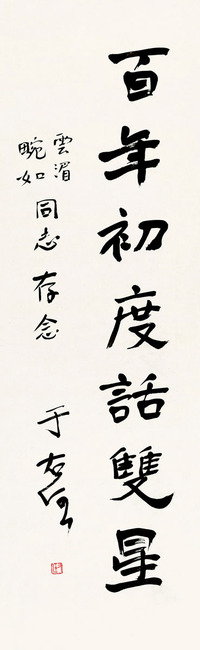 百年初度話雙星
雲湄
畹如同志存念
于右任